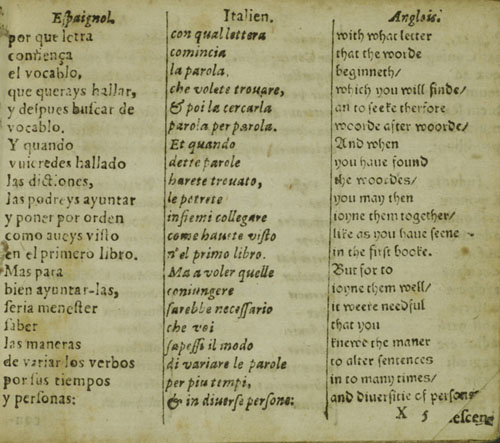 Espaignol.
por que letra
comiença
el vocablo,
que querays hallar,
y despues buscar de
vocablo.
Y quando
vuieredes hallado
las dictiones,
las podreys ayuntar
y poner por orden
como aueys visto
en el primero libro.
Mas para
bien ayuntar-las,
seria menester
saber
las maneras
de variar los verbos
por sus tiempos
y personas:
Italien.
con qual lettera
comincia
la parola.
che volete trouare,
& poi la cercarla
parola per parola.
Et quando
dette parole
harete trouato,
le potrete
insiemi collegare
come hauete visto
n'el primo libro.
Ma a voler quelle
coniungere
sarebbe necessario
che voi
sapessi il modo
di variare le parole
per piu tempi,
& in diuerse persone:
Anglois.
with what letter
that the worde
beginneth/
which you will finde/
an to seeke therfore
woorde after woorde/
And when
you have found
the woordes/
you may then
ioyne them together/
like as you have seene
in the first booke.
But for to
ioyne them well/
it weere needful
that you
knewe the maner
to alter sentences
in to many times/
and diversitie of persons
X 5